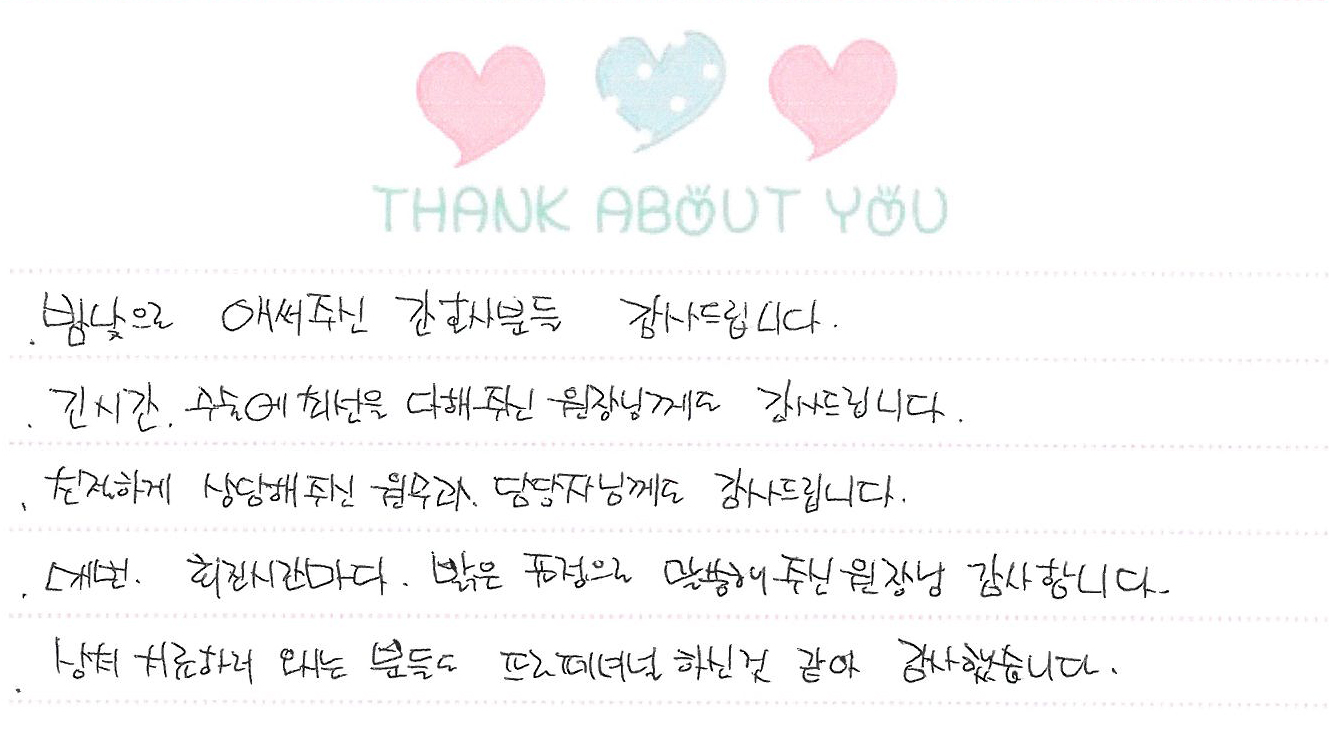 THANK ABOUT YOU
. 밤낮으로 애써주신 간호사분들 감사드립니다.
. 긴시간. 수술에 최선을 다해주신 원장님께도 감사드립니다.
. 친절하게 상담해주신 원무과. 담당자님께도 감사드립니다.
. 매번. 회진시간마다. 밝은 표정으로 말씀해 주신 원장님 감사합니다.
. 상처 치료하러 오시는 분들도 하신것 같아 감사했습니다.